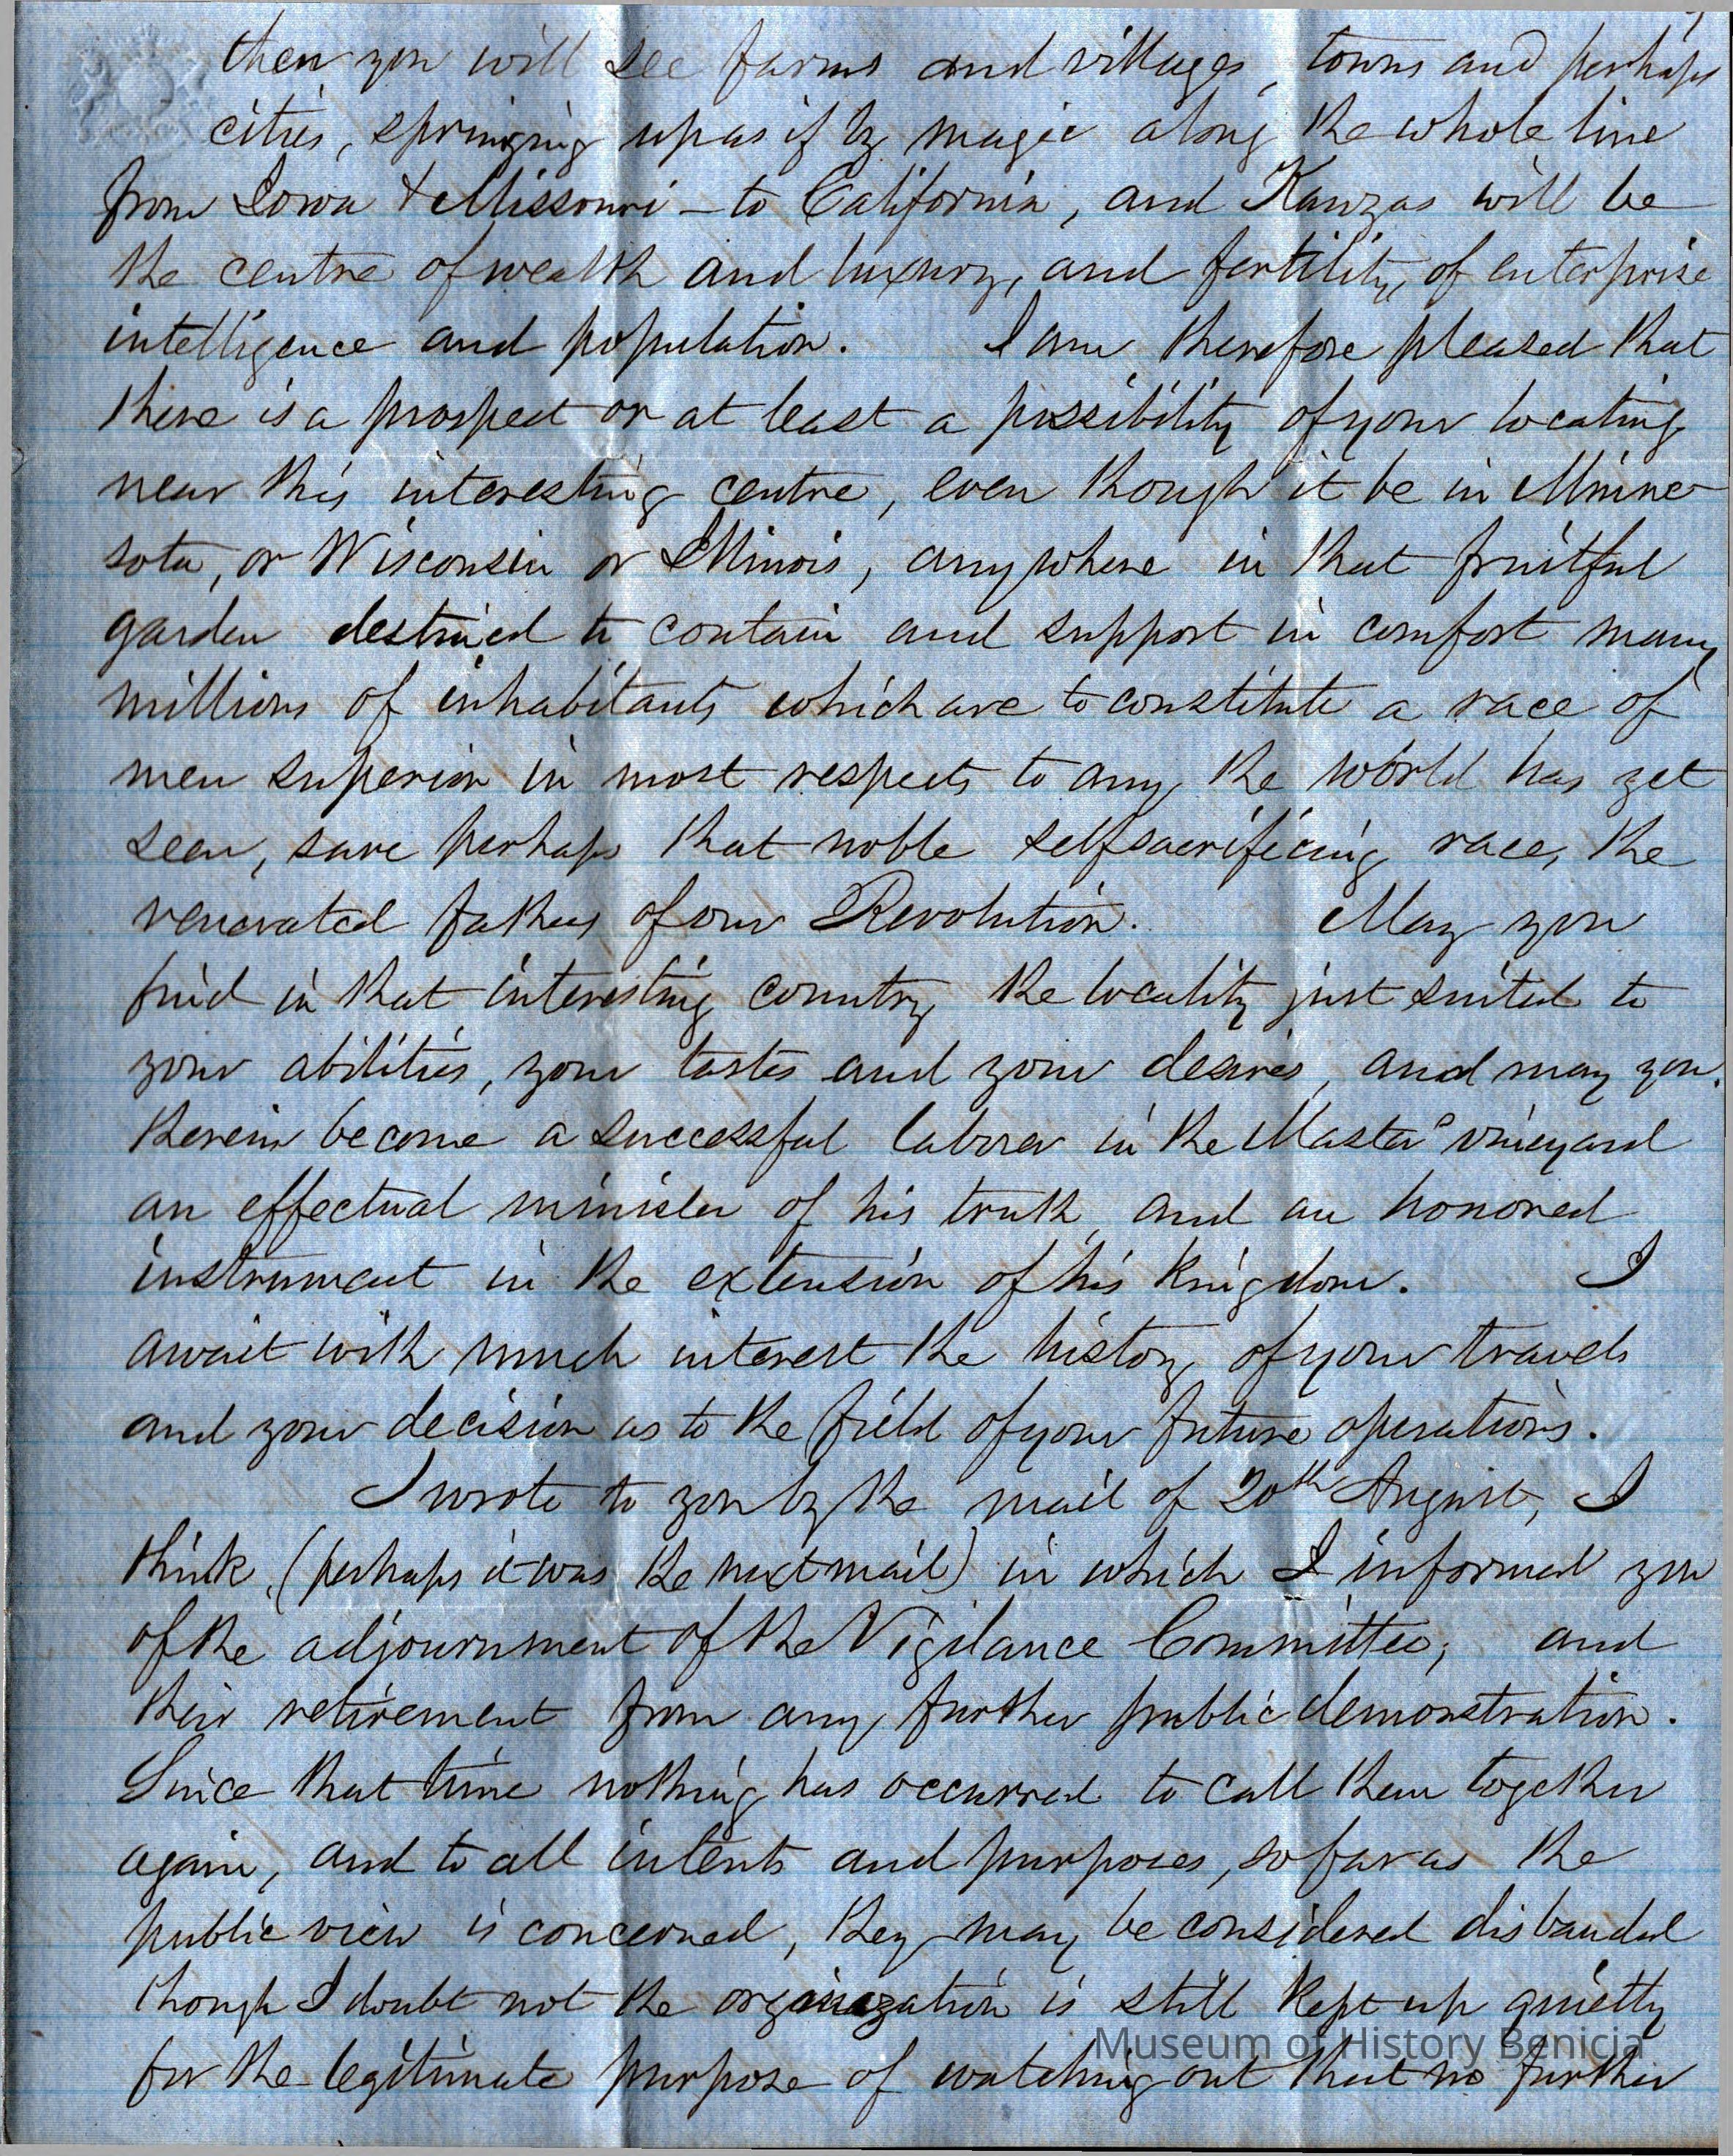 then you will see farms and villages, towns and perhaps
cities, springing up as if by magic along the whole line
from Iowa & Missouri - to California, and Kanzas will be
the centre of wealth and luxury, and fertility, of enterprise
intelligence and population. I am therefore pleased that
there is a prospect or at least a possibility of your locating
near this interesting centre, even though it be in Minne-
sota, or Wisconsin or Illinois, anywhere in that fruitful
garden destined to contain and support in comfort many
millions of inhabitants which are to constitute a race of
men superior in most respects to any the world has yet
seen, save perhaps that noble selfsacrificing race, the
venerated fathers of our Revolution. May you
find in that interesting country the locality just suited to
your abilities, your tastes and your desires, and may you
therein become a successful laborer in the Master's vineyard
an effectual minister of his truth, and an honored
instrument in the extension of his kingdom. I
await with much interest the history of your travels
and your decision as to the field of your future operations.
I wrote to you by the mail of 20th August, I
think, (perhaps it was the next mail) in which I informed you
of the adjournment of the Vigilance Committee, and
their retirement from any further public demonstration.
Since that time nothing has occurred to call them together
again, and to all intents and purposes, so far as the
public view is concerned, they may be considered disbanded
though I doubt not the organization is still kept up quietly
for the legitimate purpose of watching out that no further
Museum of History Benicia